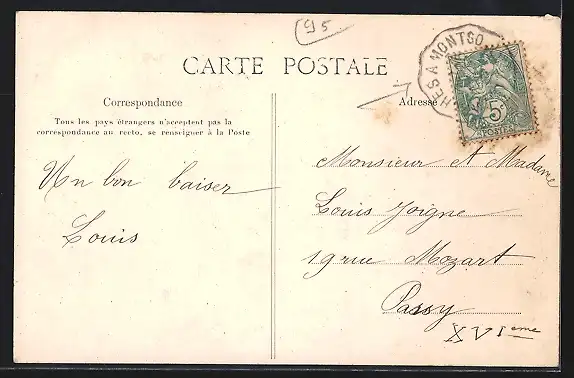 95
CARTE POSTALE
Correspondance
Tous les pays étrangers n'acceptent pas la
correspondance au recto, se renseigner à la Poste
Un bon baiser
Louis
Adresse
HES A MONTSO
5c
POSTES
Monsieur et Madame
Louis Joigne
19 rue Mozart
Passy
XVIeme